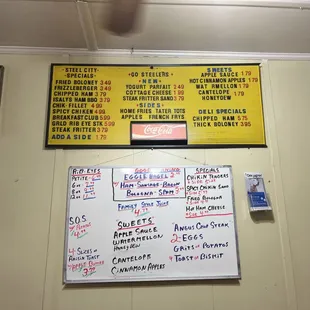 STEEL CITY
SPECIALS
FRIED BOLONEY 3.49
FRIZZELBERGER 3.49
CHIPPED HAM 3.79
ISALYS HAM BBQ 3.79
CHIK-FILLET 4.99
SPICY CHIKEN 4.99
BREAKFAST CLUB 5.99
GRLD RIB EYE STK
STEAK FRITTER 3.99
ADD A SIDE
GO STEELERS
NEW
YOGURT PARFAIT
COTTAGE CHEESE 1.99
STEAK FRITTER SAND
SIDES
HOME FRIES TATER TOTS
APPLES FRENCH FRYS
Coca-Cola
SWEETS
APPLE SAUCE 1.79
HOT CINNAMON APPLES
MAT RMELLON 1.79
CANTELOPE
HONEYDEW
DELI SPECIALS
CHIPPED HAM 5.75
THICK BOLONEY 3.95
PETITE
SOS
4-SIZES
RAISIN TOAST
APPLE BUTTER
EGGLE BAGEL
HAM-SAUSAGE-BACON
BOLOGNA-SPAM
FAMILY SIZE JUICE
SWEETS
APPLE SAUCE
WATERMELLON
HONEYDEW
CANTELOPE
CINNAMON APPLES
SPECIALS
CHIKIN TENDERS
SPICY CHIKIN SAND
FRIED BOLONA
HOT HAM CHEESE
ANGUS CUBE STEAK
2-EGGS
GRITS OR POTATOS
TOAST OR BISMIT